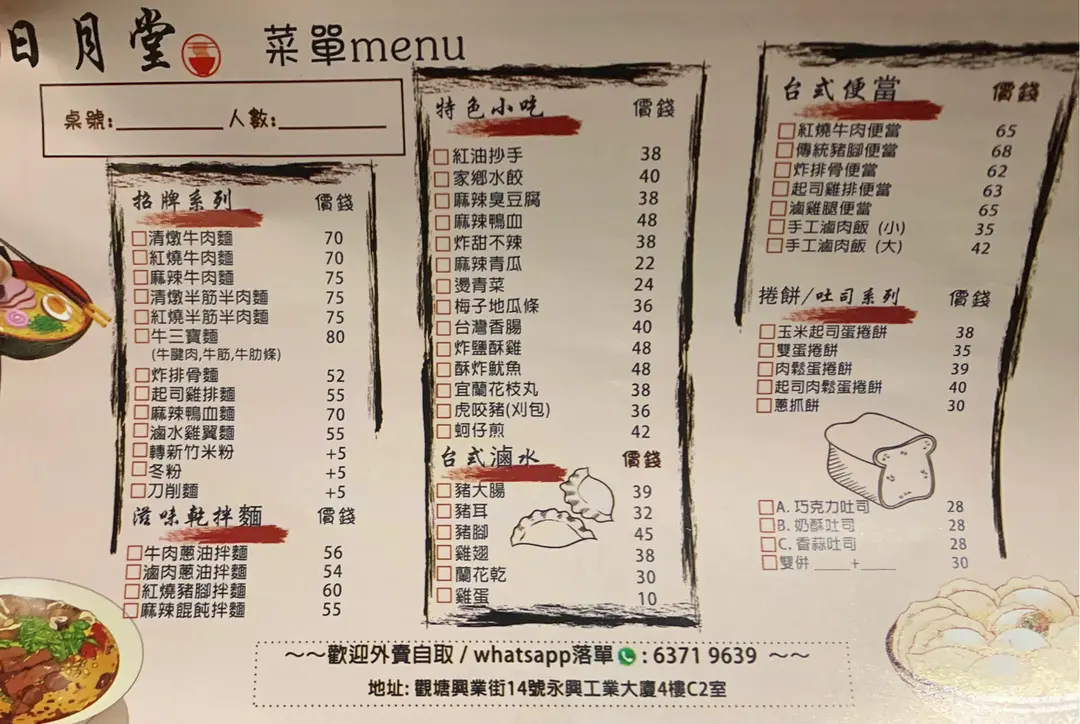 日月堂 菜單menu
桌號:________人數:________
招牌系列 價錢
清燉牛肉麵 70
紅燒牛肉麵 70
麻辣牛肉麵 75
清燉半筋半肉麵 75
紅燒半筋半肉麵 75
牛三寶麵 80
(牛腱肉,牛筋,牛肋條)
炸排骨麵 52
起司雞排麵 55
麻辣鴨血麵 70
滷水雞翼麵 55
轉新竹米粉 +5
冬粉 +5
刀削麵 +5
滋味乾拌麵 價錢
牛肉蔥油拌麵 56
滷肉蔥油拌麵 54
紅燒豬腳拌麵 60
麻辣餛飩拌麵 55
特色小吃 價錢
紅油抄手 38
家鄉水餃 40
麻辣臭豆腐 38
麻辣鴨血 48
炸甜不辣 38
麻辣青瓜 22
燙青菜 24
梅子地瓜條 36
台灣香腸 40
炸鹽酥雞 48
酥炸魷魚 48
宜蘭花枝丸 38
虎咬豬(刈包) 36
蚵仔煎 42
台式滷水 價錢
豬大腸 39
豬耳 32
豬腳 45
雞翅 38
蘭花乾 30
雞蛋 10
台式便當 價錢
紅燒牛肉便當 65
傳統豬腳便當 68
炸排骨便當 62
起司雞排便當 63
滷雞腿便當 65
手工滷肉飯 (小) 35
手工滷肉飯 (大) 42
捲餅/吐司系列 價錢
玉米起司蛋捲餅 38
雙蛋捲餅 35
肉鬆蛋捲餅 39
起司肉鬆蛋捲餅 40
蔥抓餅 30
A. 巧克力吐司 28
B. 奶酥吐司 28
C. 香蒜吐司 28
雙併 ____+____ 30
~~歡迎外賣自取 / whatsapp落單 : 6371 9639 ~~
地址: 觀塘興業街14號永興工業大廈4樓C2室